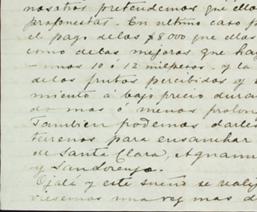 nosotros pretendemos que ellos
propuestas. En ultimo caso p
el pago de las $8000 que ellas
como de las mejoras que ha
unos 10 ó 12 mil pesos. y la
de los frutos percibidos y
miento á bajo precio dura
do mas ó menos prolon
Tambien podemos darles
terrenos para ensanchar
de Santa Clara, Aguana
y San Lorenzo.
Ojalá y este sueño se reali
viesemos una vez mas d